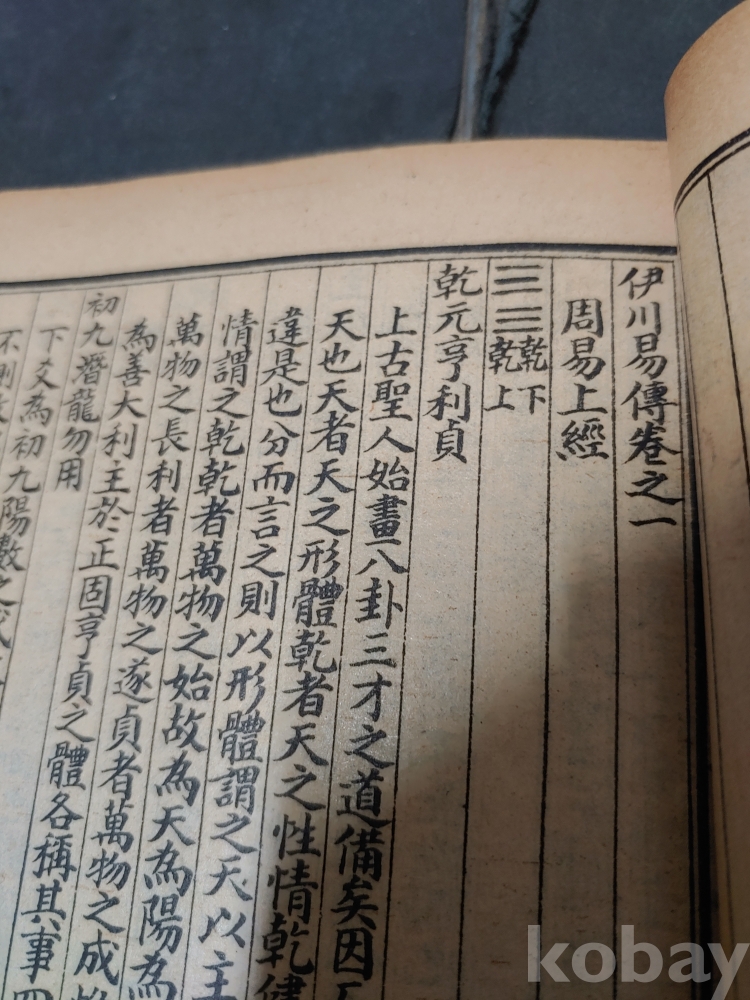 伊川易傳卷之一
周易上經
☰☰乾下乾上
乾元亨利貞
上古聖人始畫八卦三才之道備矣因
天也天者天之形體乾者天之性情乾健
違是也分而言之則以形體謂之天以主
情謂之乾乾者萬物之始故為天為陽為
萬物之長利者萬物之遂貞者萬物之成
為善大利主於正固亨貞之體各稱其事四
初九潛龍勿用
下爻為初九陽數之
不測故
kobay